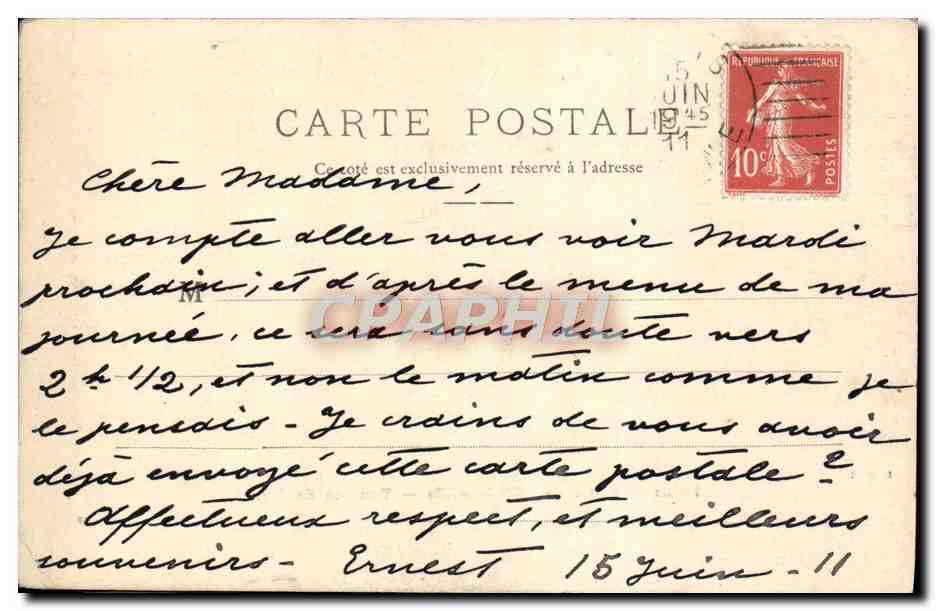 RÉPUBLIQUE FRANÇAISE
10c
POSTES
15
JUIN
9 45
11
CARTE POSTALE
Ce côté est exclusivement réservé à l'adresse
Chère Madame,
Je compte aller vous voir Mardi
prochain ; et d'après le menu de ma
M
journée, ce sera sans doute vers
CPAPHIL
2h 1/2, et non le matin comme je
le pensais - Je crains de vous avoir
déjà envoyé cette carte postale ?
Affectueux respect, et meilleurs
souvenirs - Ernest 15 Juin - 11